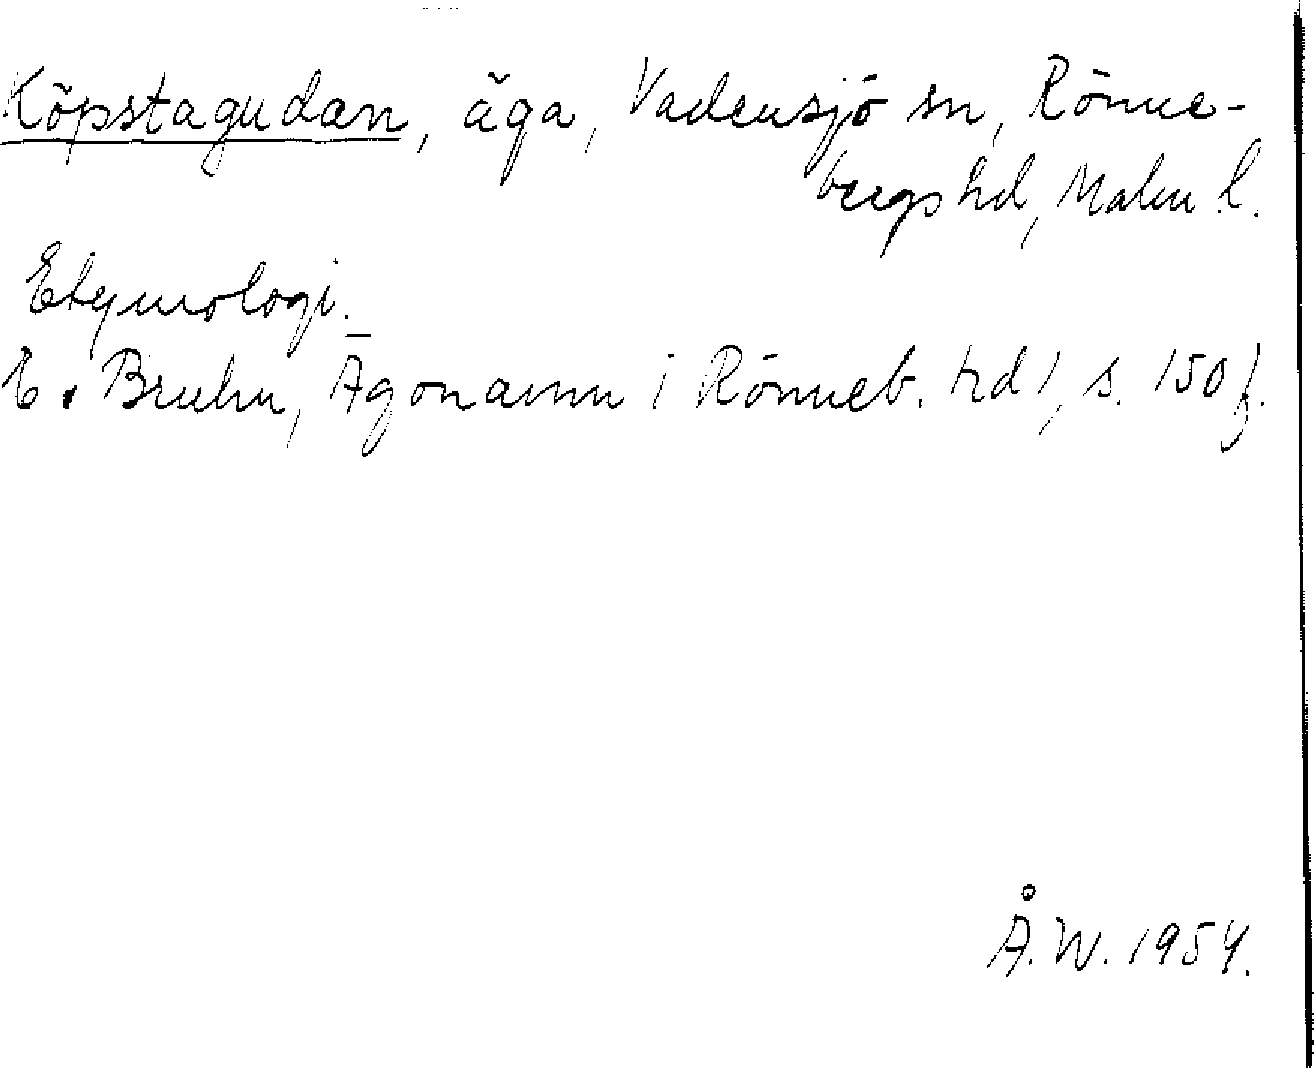 Köpstagudan, äga, Vadensjö sn, Rönne-
bergs hd, Malm. l.
Etymologi.
E. Bruhn, Ägonamn i Rönneb. hd 1, s. 150 f.
Å.W. 1954.